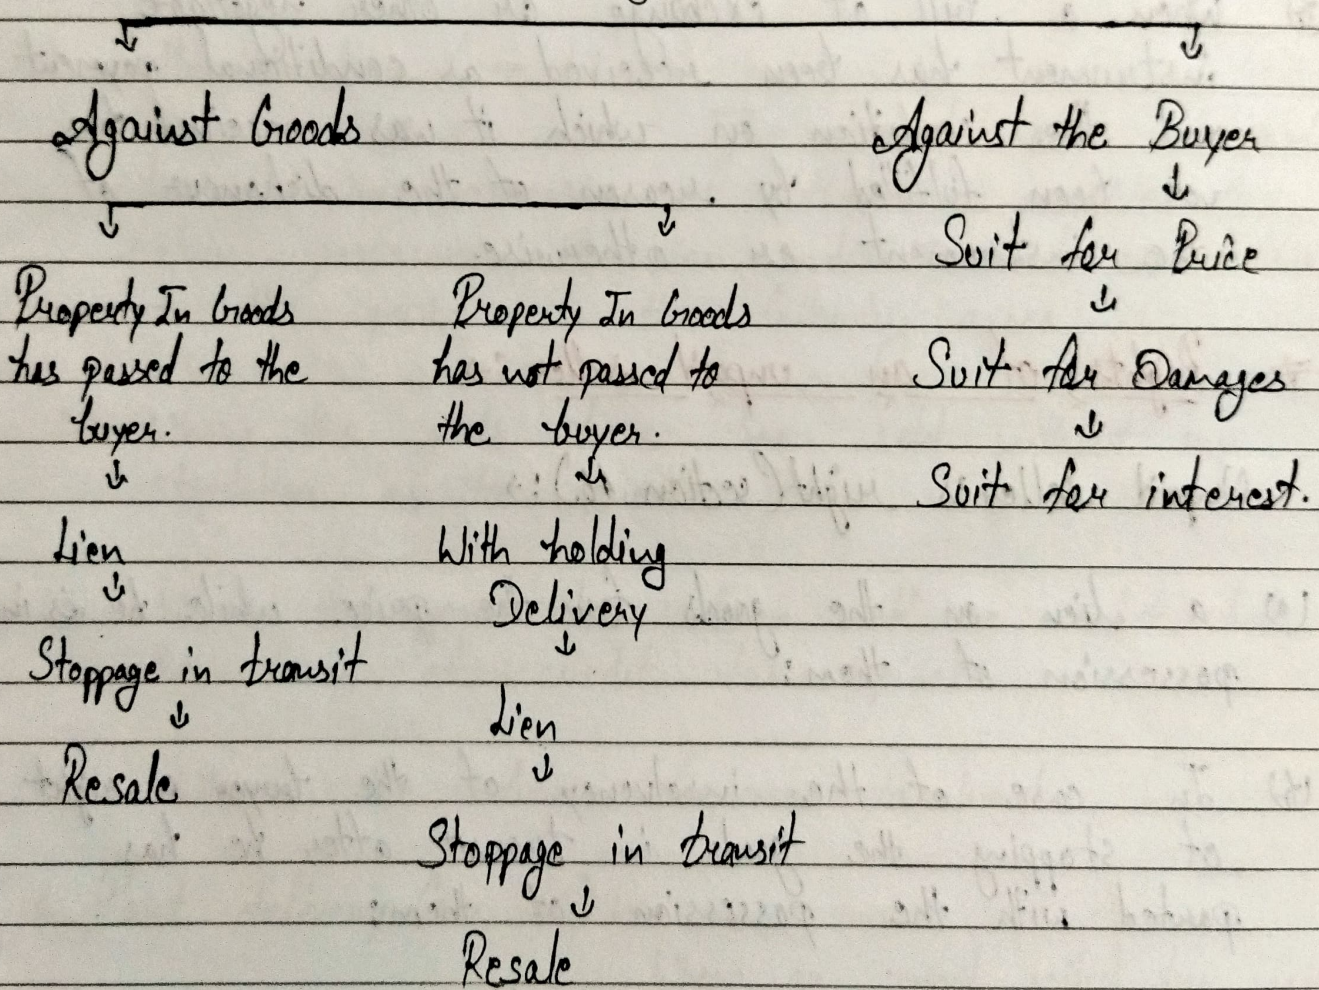 Against Goods
Against the Buyer
Property In Goods
has passed to the
buyer.
Lien
Stoppage in transit
Resale
Property In Goods
has not passed to
the buyer.
With holding
Delivery
Lien
Stoppage in transit
Resale
Suit for Price
Suit for Damages
Suit for interest.